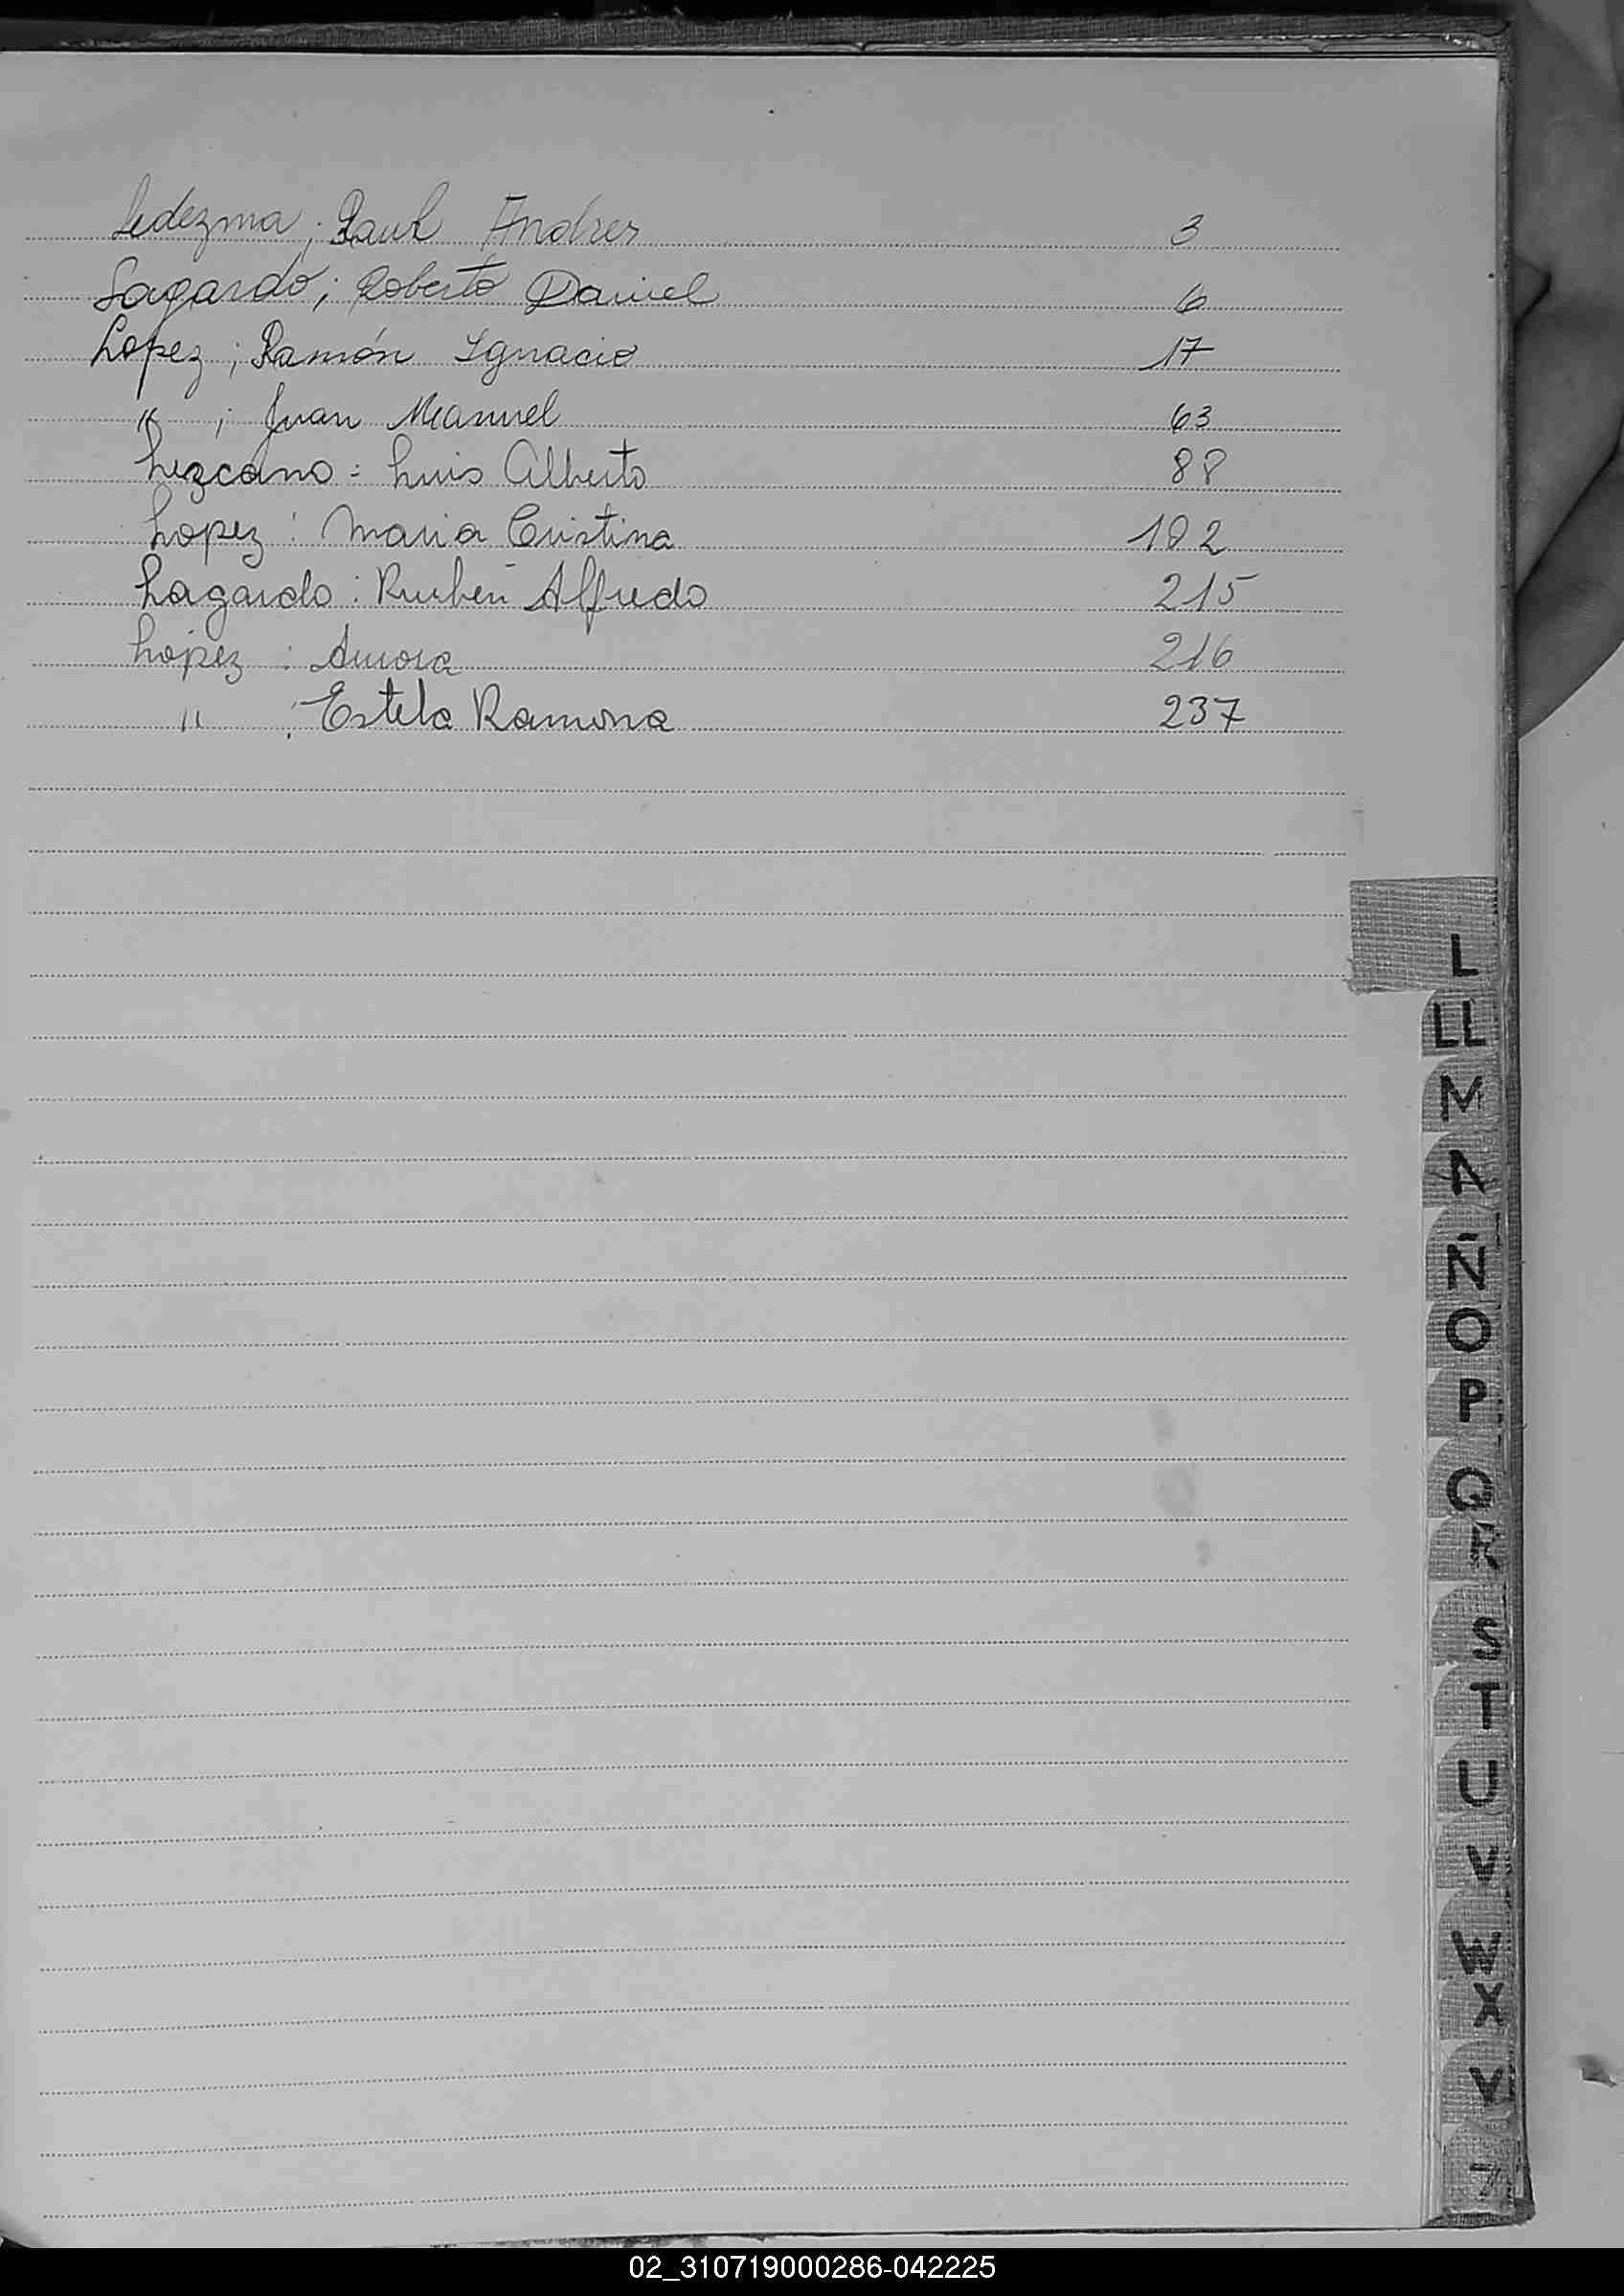 Ledezma; Raul Andres 3
Lagardo; Roberto Daniel 6
Lopez; Ramón Ignacio 17
" ; Juan Manuel 63
Lezcano: Luis Alberto 88
Lopez: Maria Cristina 192
Lagardo: Rubén Alfredo 215
Lopez: Aurora 216
" : Estela Ramona 237
L
LL
M
N
Ñ
O
P
Q
R
S
T
U
V
W
X
Y
Z
02_310719000286-042225